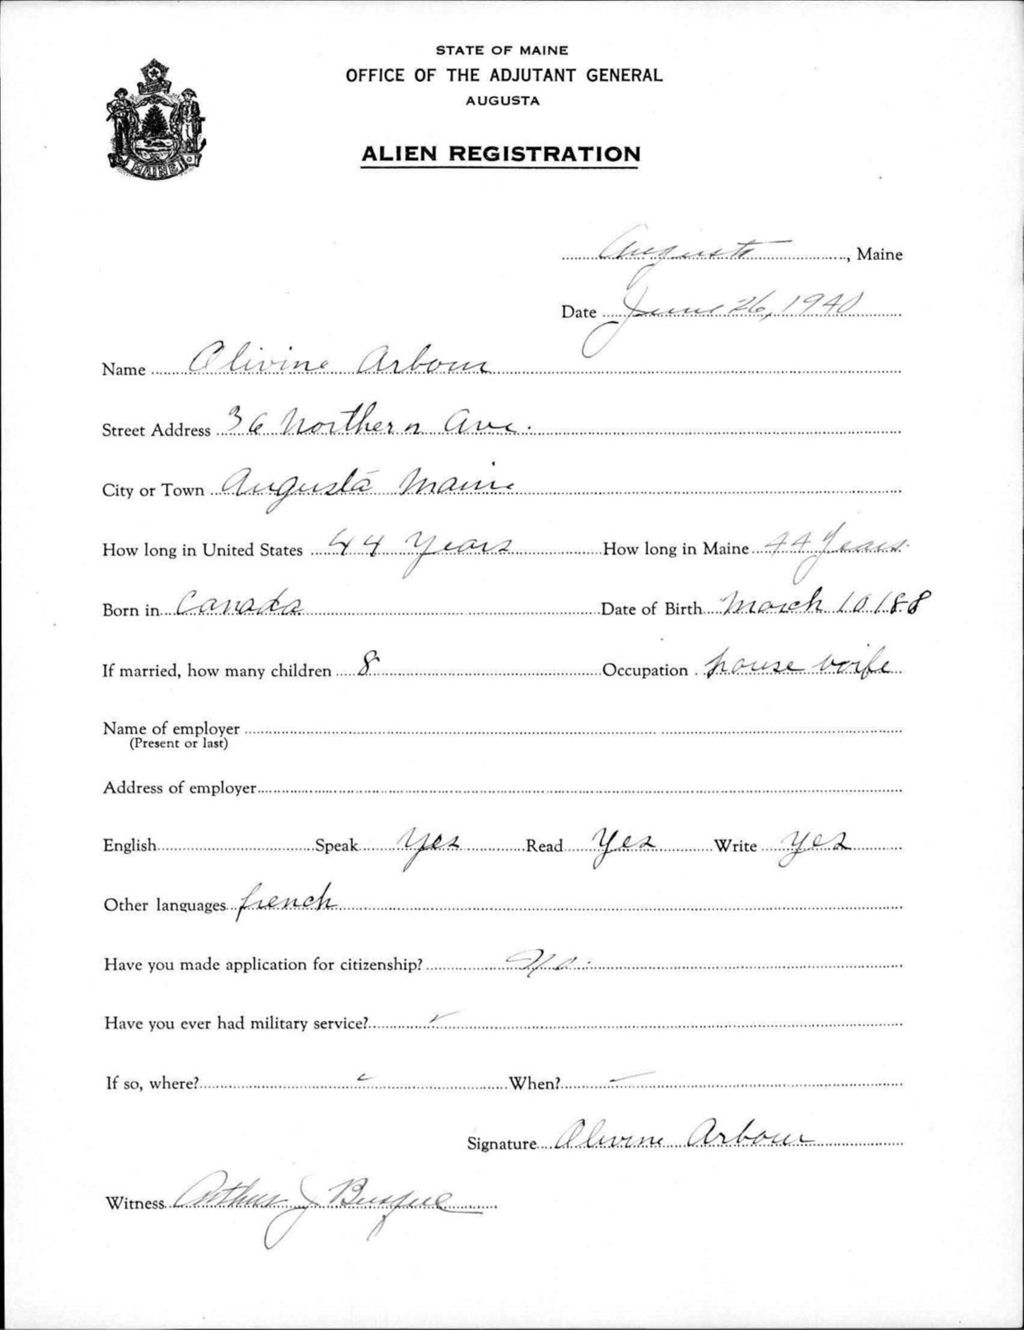 STATE OF MAINE
OFFICE OF THE ADJUTANT GENERAL
AUGUSTA
ALIEN REGISTRATION
MAINE
Augusta, Maine
Date June 26, 1940
Name Olivine Arbour
Street Address 36 Northern Ave.
City or Town Augusta Maine
How long in United States 44 Years How long in Maine 44 Years
Born in Canada Date of Birth March 10 188
If married, how many children 8 Occupation house wife
Name of employer
(Present or last)
Address of employer
English Speak Yes Read Yes Write Yes
Other languages french
Have you made application for citizenship? No.
Have you ever had military service? -
If so, where? - When? -
Signature Olivine Arbour
Witness Arthur J Busque